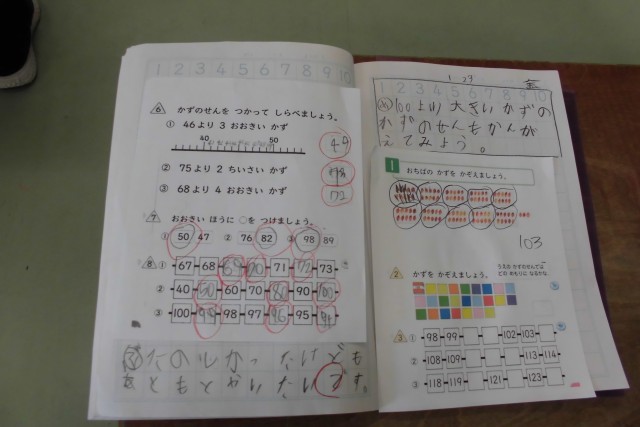 1 2 3 4 5 6 7 8 9 10
6 かずのせんを つかって しらべましょう。
① 46より 3 おおきい かず 49
40 50
② 75より 2 ちいさい かず
③ 68より 4 おおきい かず 72
7 おおきい ほうに ○を つけましょう。
① 50 47 ② 76 82 ③ 98 89
8 ① 67 68 69 70 71 72 73
② 40 50 60 70 80 90 100
③ 100 99 98 97 96 95 94
たのしかったけども
もともとやいたいです。
1 23 金
1 2 3 4 5 6 7 8 9 10
め 100より大きいかずの
かずのせんをかんが
えてみよう。
1 おちばの かずを かぞえましょう。
103
2 かずを かぞえましょう。
うえの かずのせんでは
どの めもりに なるかな。
3 ① 98 99 102 103
② 108 109 113 114
③ 118 119 121 123